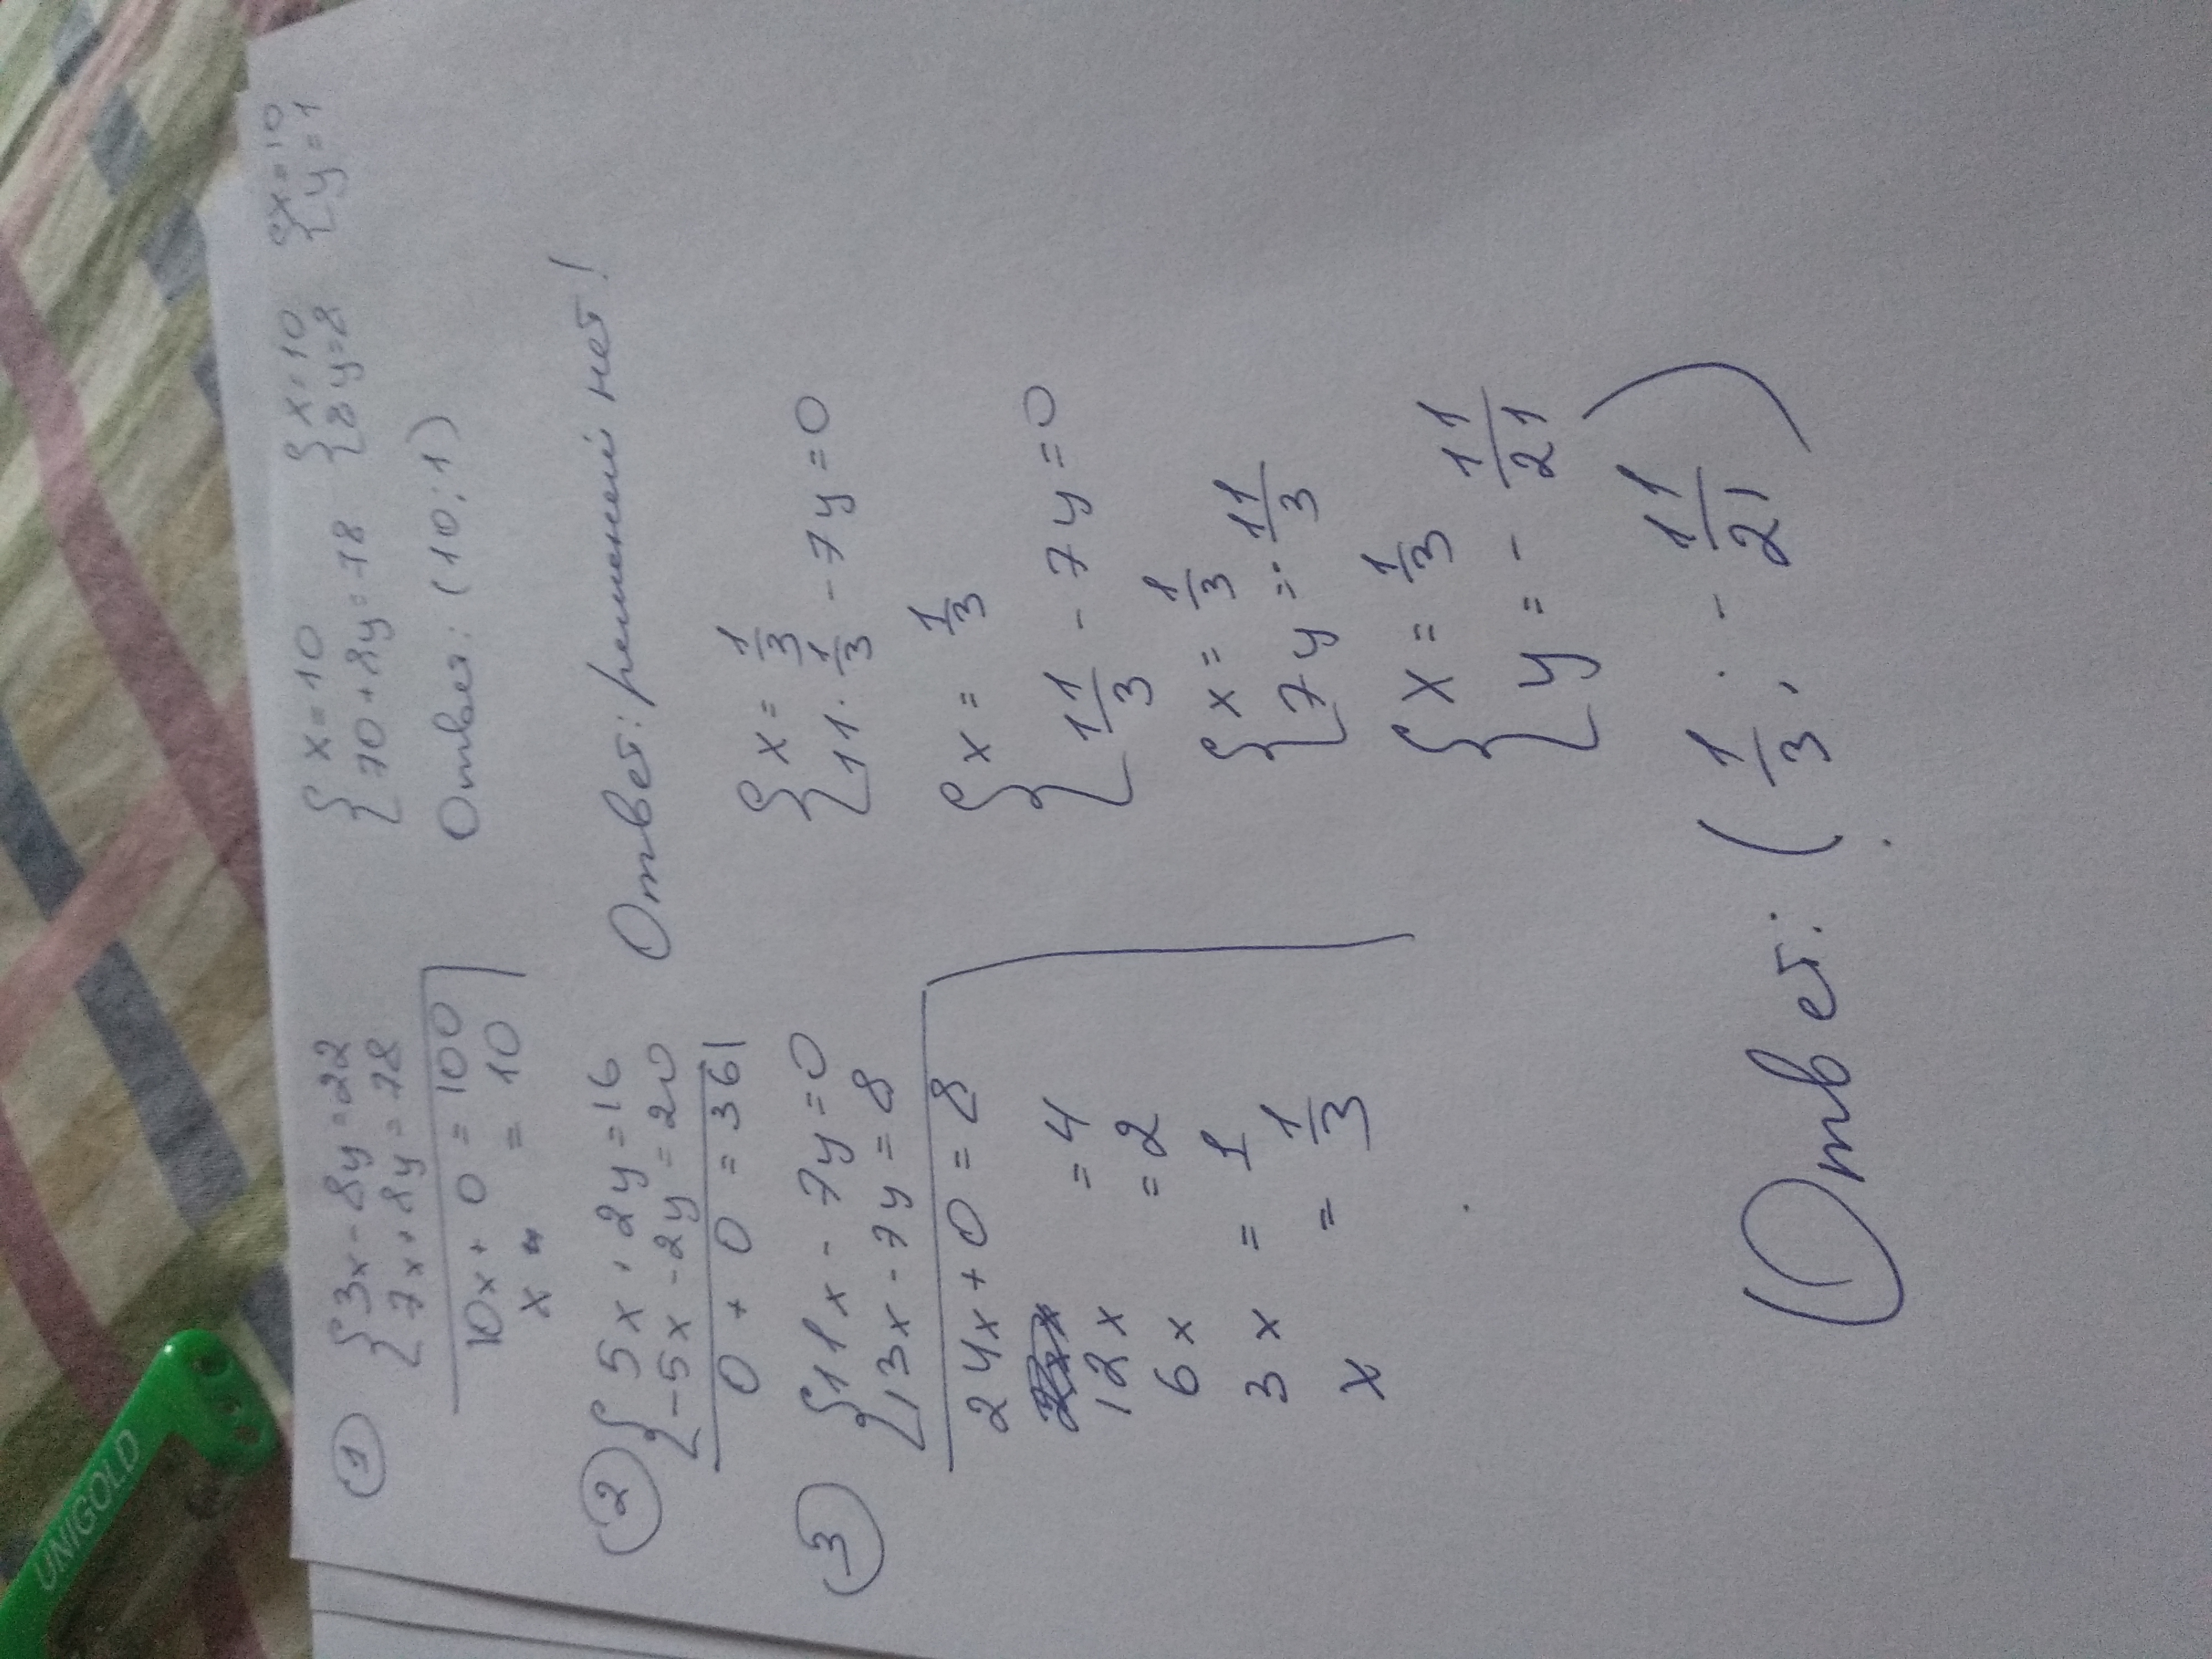 UNIGOLD
① { 3x - 8y = 22
7x + 8y = 78
10x + 0 = 100
x = 10
{ x = 10
70 + 8y = 78
{ x = 10
8y = 8
{ x = 10
y = 1
Ответ: (10; 1)
② { 5x + 2y = 16
-5x - 2y = 20
0 + 0 = 36
Ответ: решений нет!
③ { 11x - 7y = 0
13x - 7y = 8
24x + 0 = 8
12x = 4
6x = 2
3x = 1
x = 1/3
{ x = 1/3
11 · 1/3 - 7y = 0
{ x = 1/3
11/3 - 7y = 0
{ x = 1/3
7y = 11/3
{ x = 1/3
y = - 11/21
Ответ: (1/3; - 11/21)